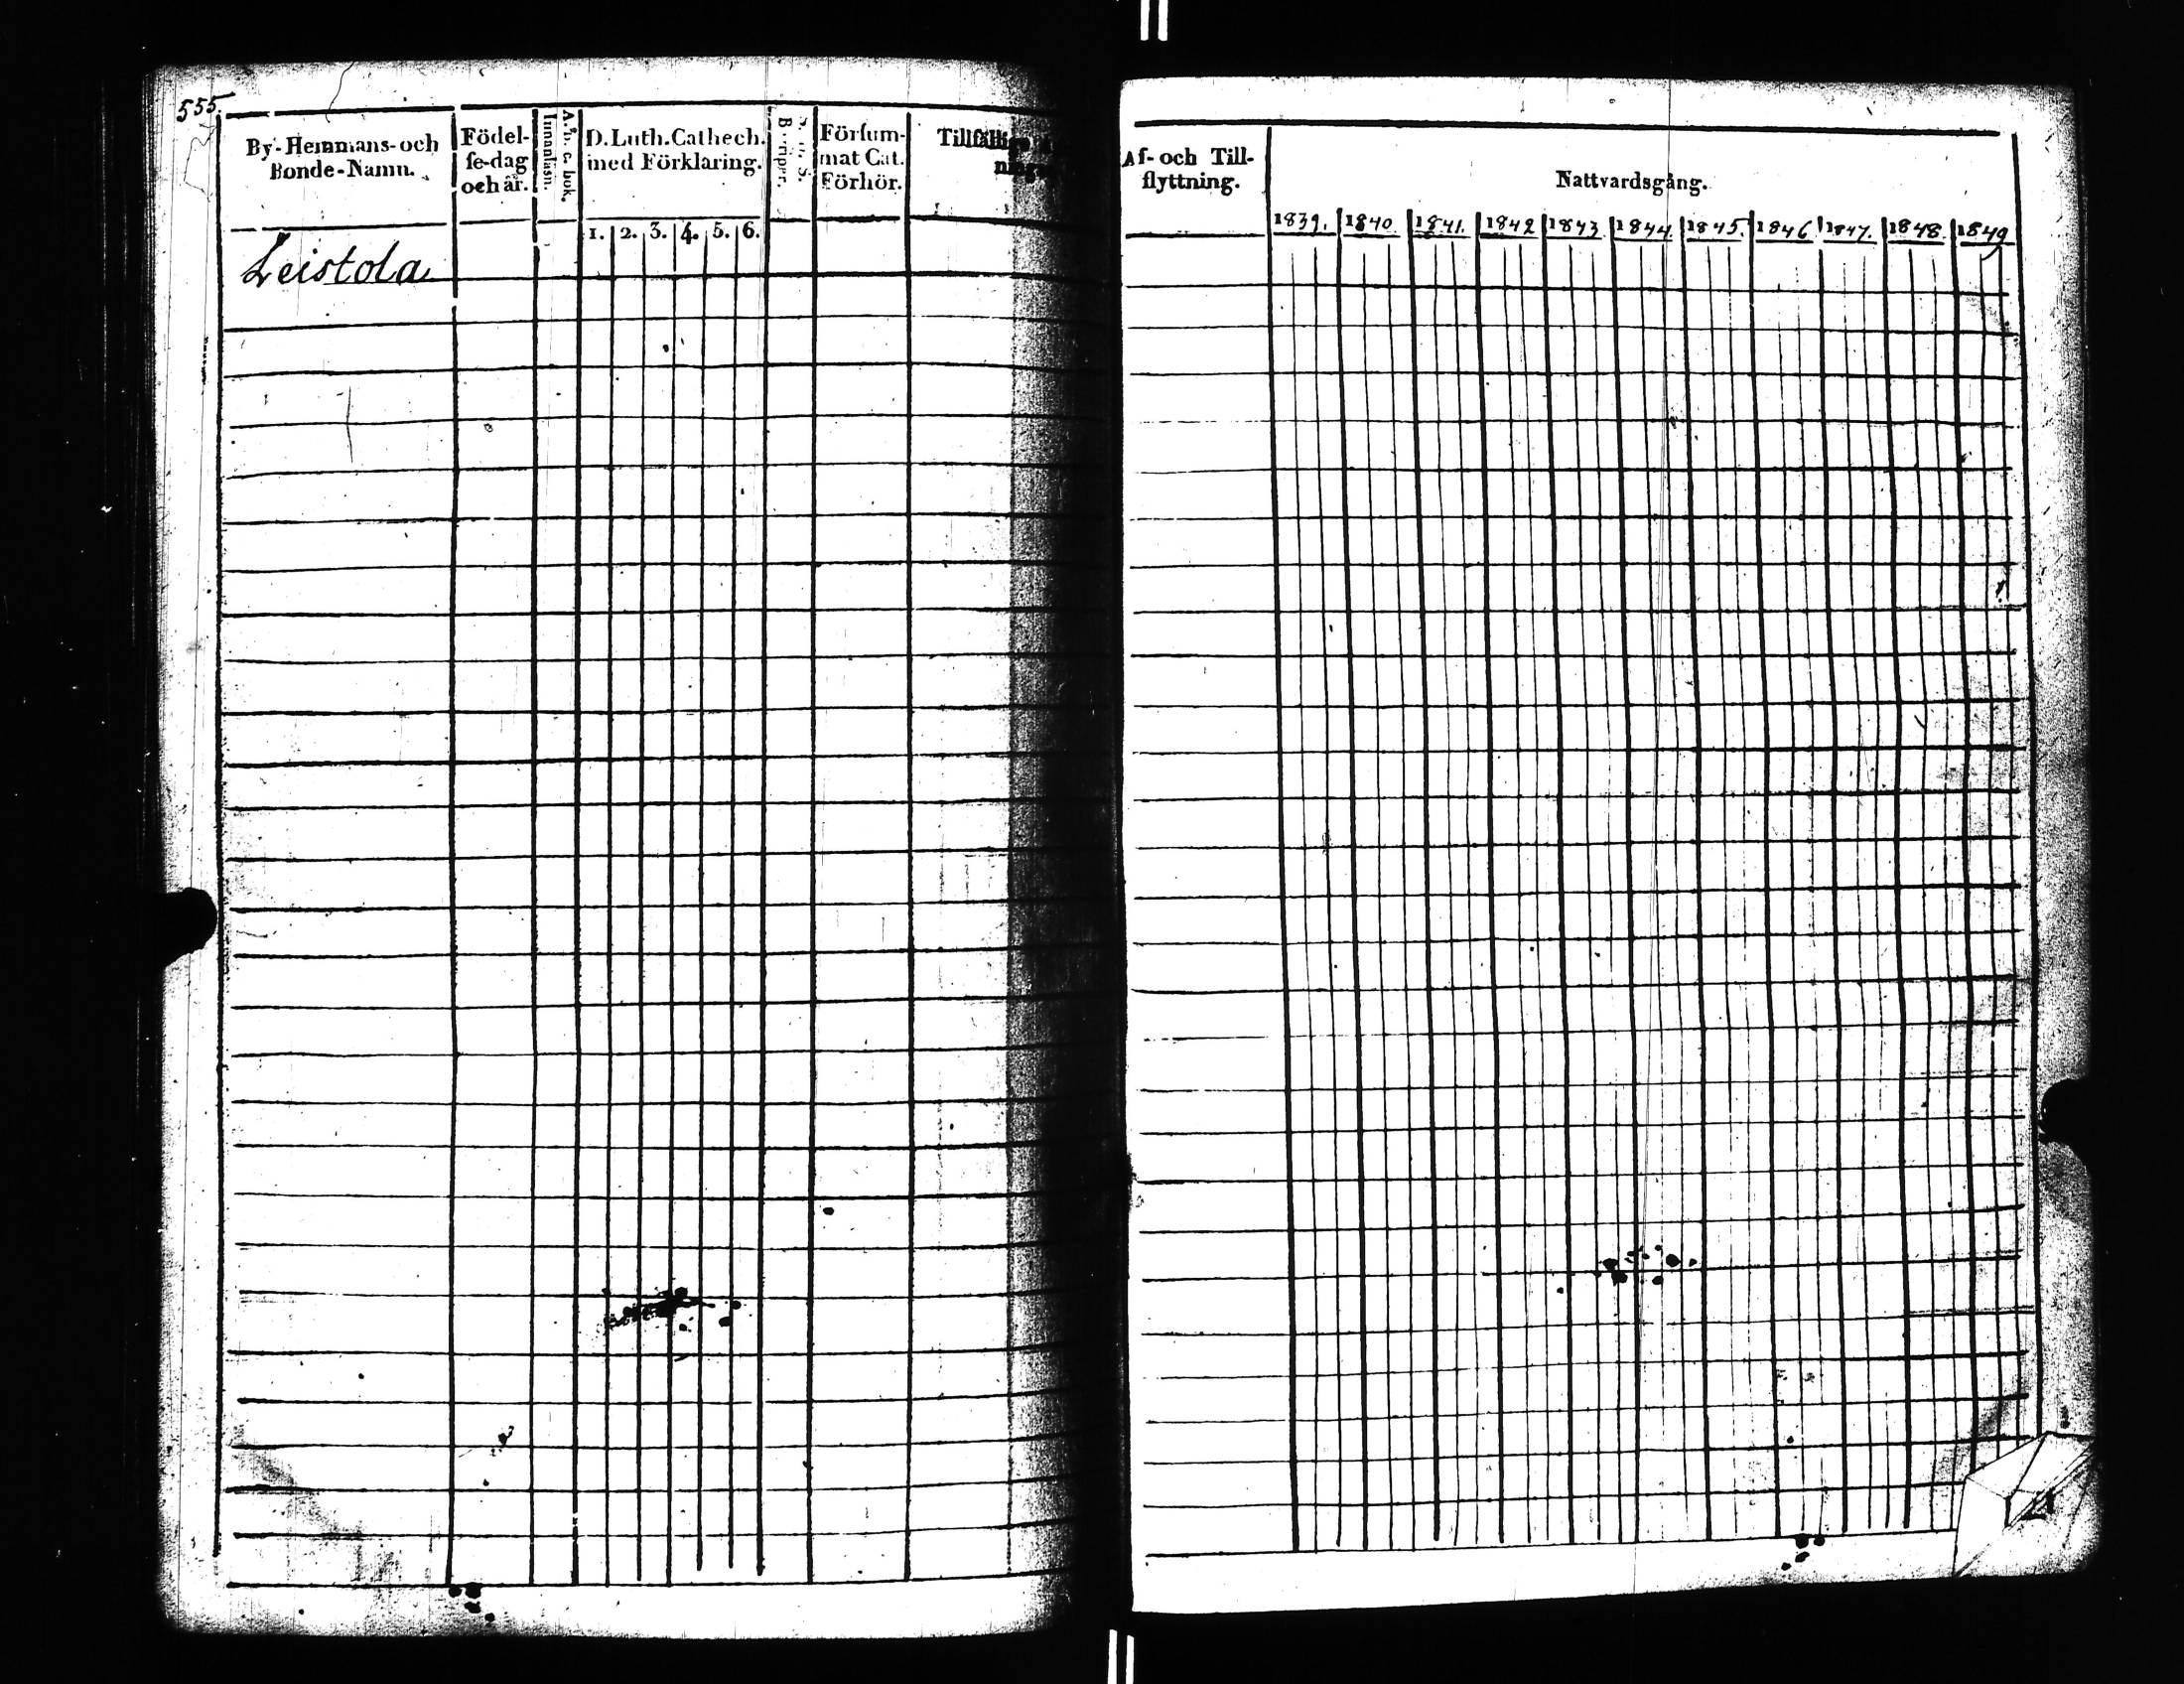 555.
By-Hemmans-och
Bonde-Namn.
Födel-
se-dag
och år.
A. b. c. bok.
Innanläsn.
D. Luth. Cathech.
med Förklaring.
Försum-
mat Cat.
Förhör.
Tillfällige
1. 2. 3. 4. 5. 6.
Leistola
Af- och Till-
flyttning.
Nattvardsgång.
1839. 1840. 1841. 1842 1843 1844. 1845. 1846 1847. 1848. 1849